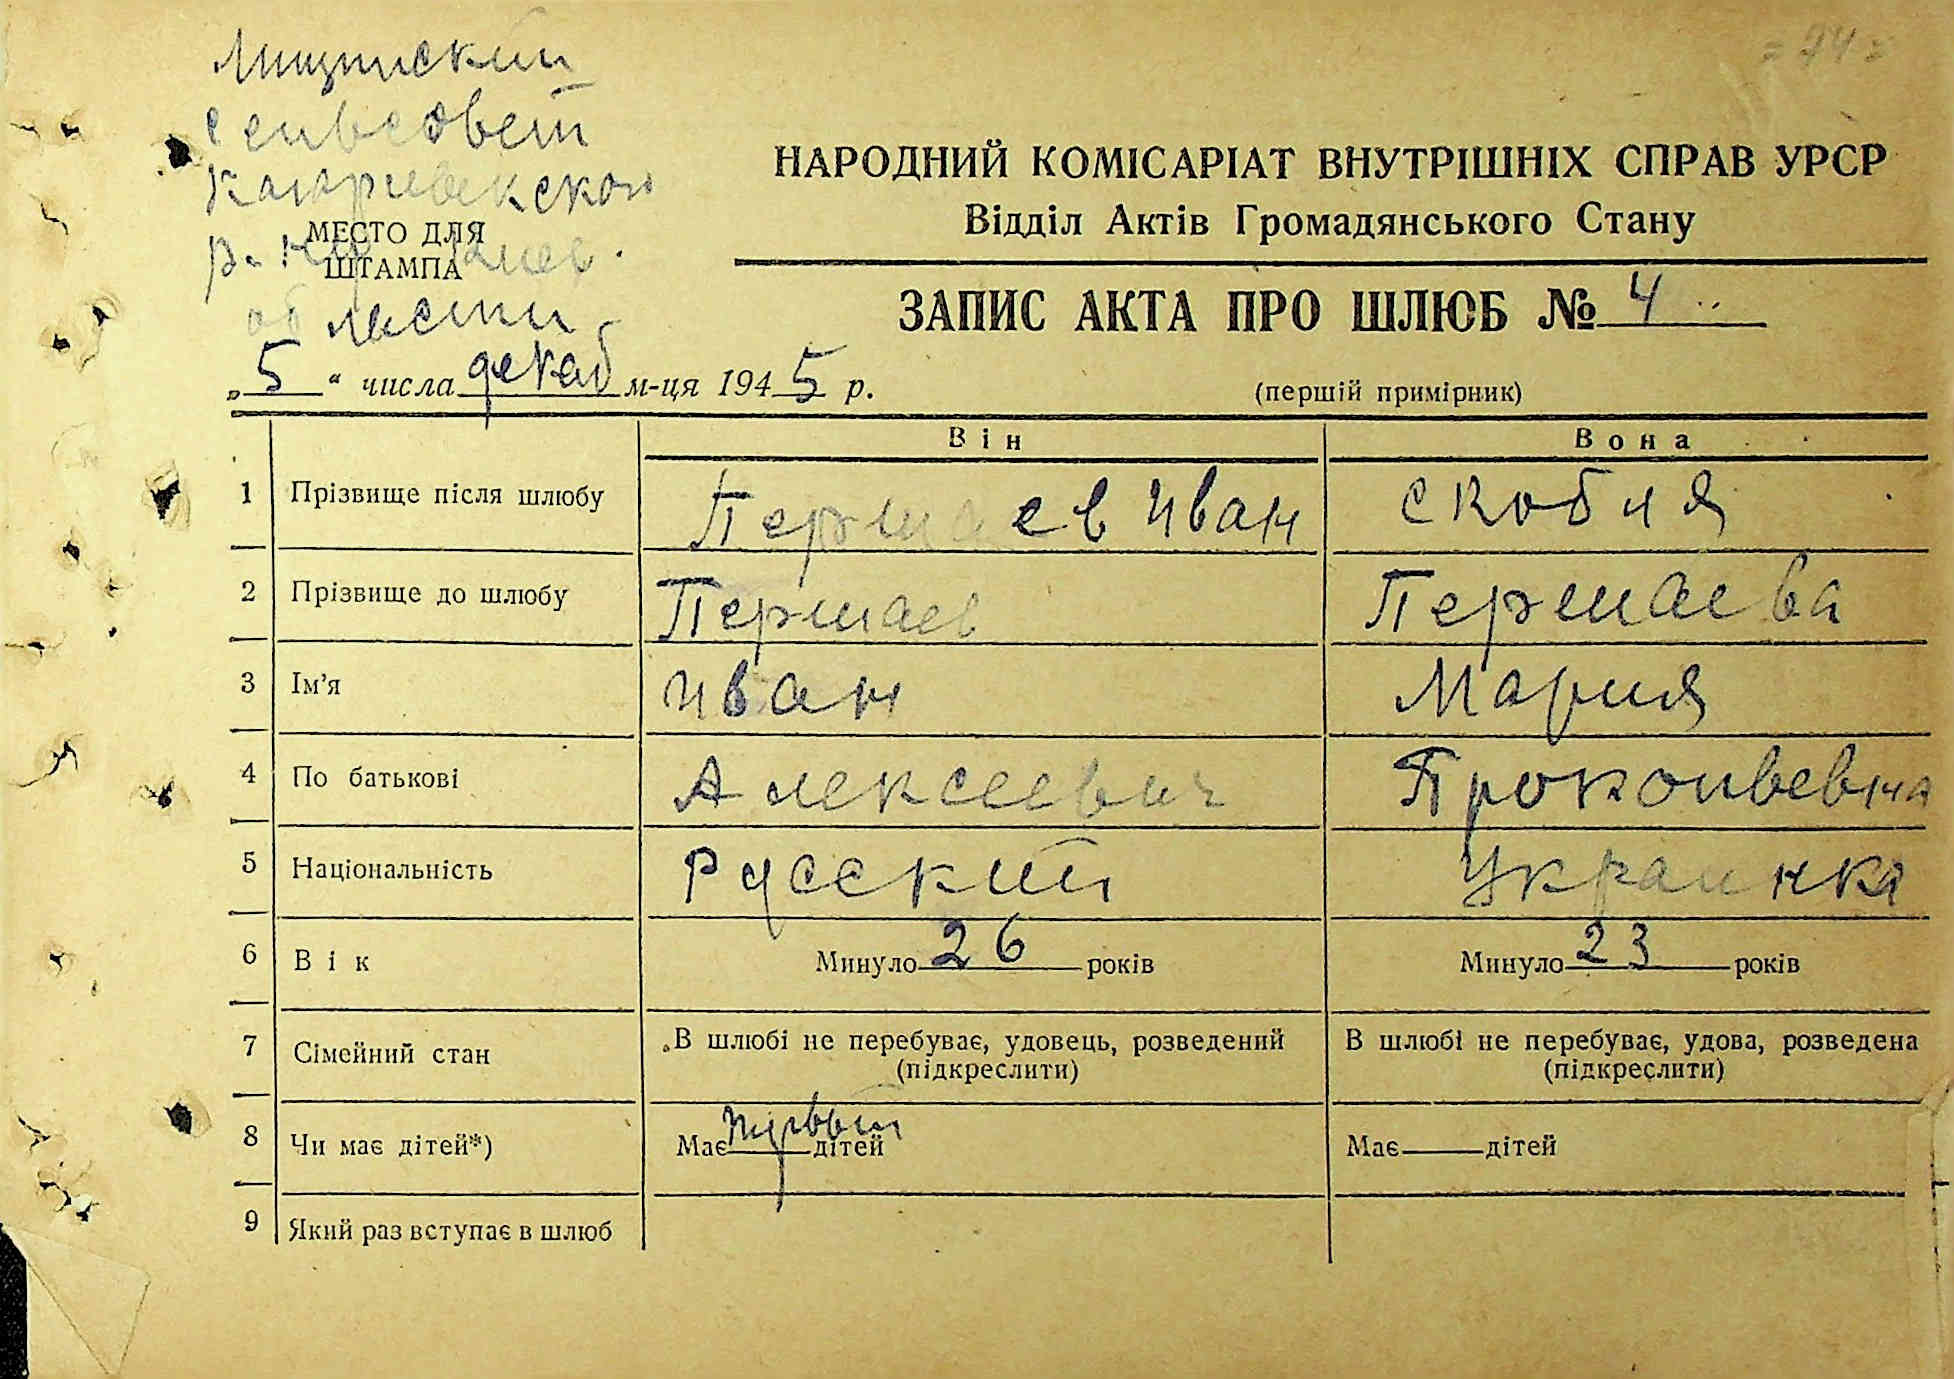 = 74 =
сельсовет
НАРОДНИЙ КОМІСАРІАТ ВНУТРІШНІХ СПРАВ УРСР
Відділ Актів Громадянського Стану
МЕСТО ДЛЯ
ШТАМПА
области
ЗАПИС АКТА ПРО ШЛЮБ № 4
„5“ числа декаб м-ця 1945 р.
(першій примірник)
Він Вона
1 Прізвище після шлюбу Першаев Иван скобля
2 Прізвище до шлюбу Першаев Першаева
3 Ім'я Иван Мария
4 По батькові Алексеевич Прокопьевна
5 Національність Русский Украинка
6 Вік Минуло 26 років Минуло 23 років
7 Сімейний стан В шлюбі не перебуває, удовець, розведений В шлюбі не перебуває, удова, розведена
(підкреслити) (підкреслити)
8 Чи має дітей*) Має первый дітей Має дітей
9 Який раз вступає в шлюб